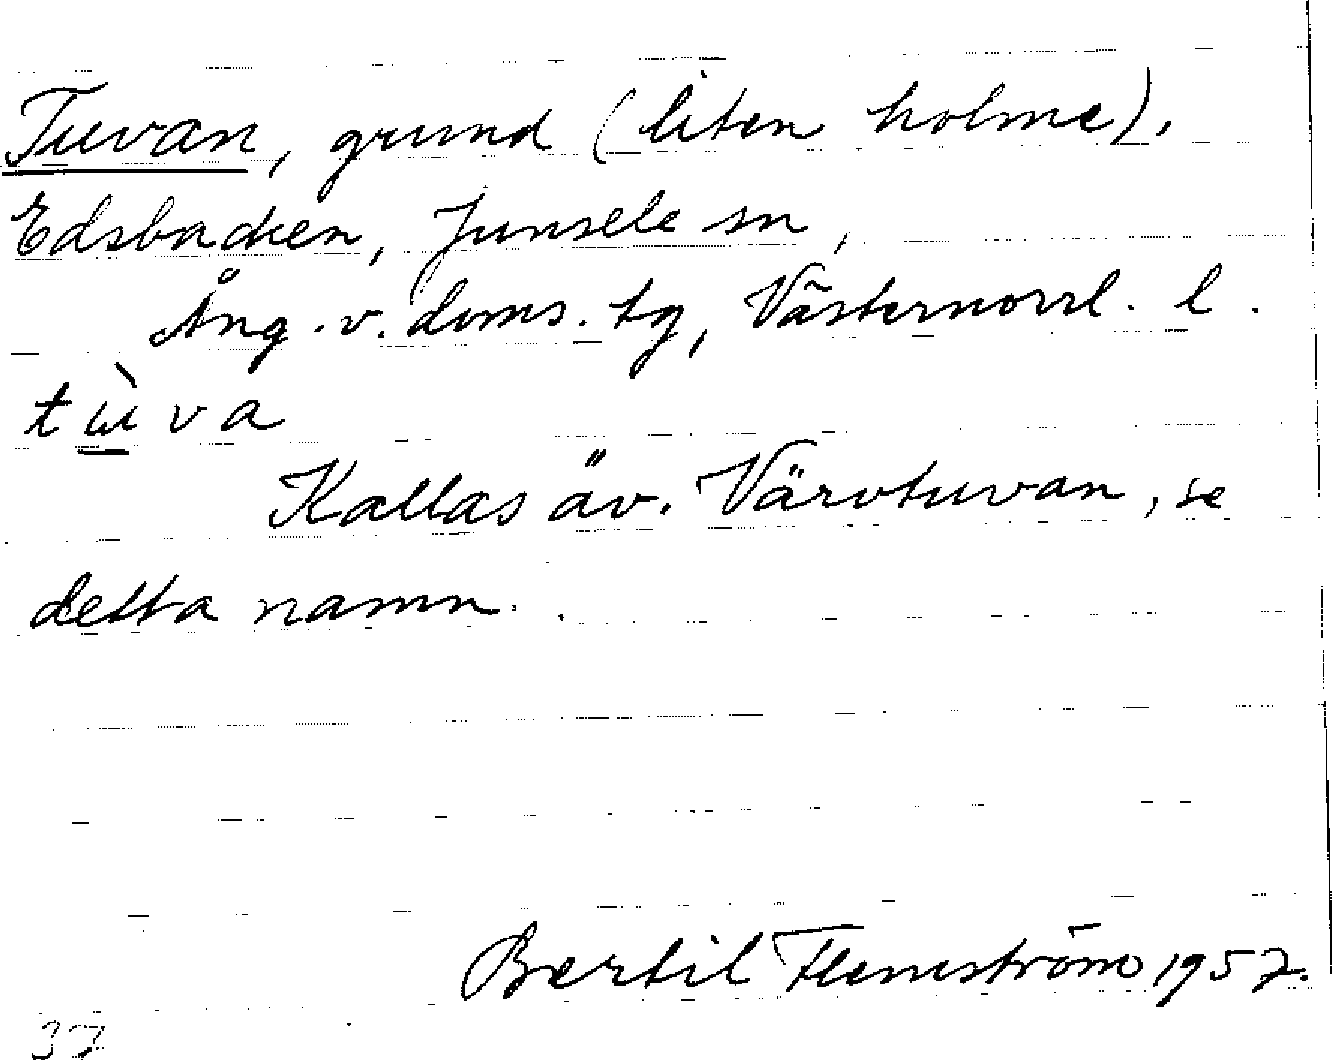 Tuvan, grund (liten holme),
Edsbacken, Junsele sn,
Ång. v. doms. tg, Västernorrl. l.
tɯ̀va
Kallas äv. Värvtuvan, se
detta namn.
Bertil Flemström 1957.
37